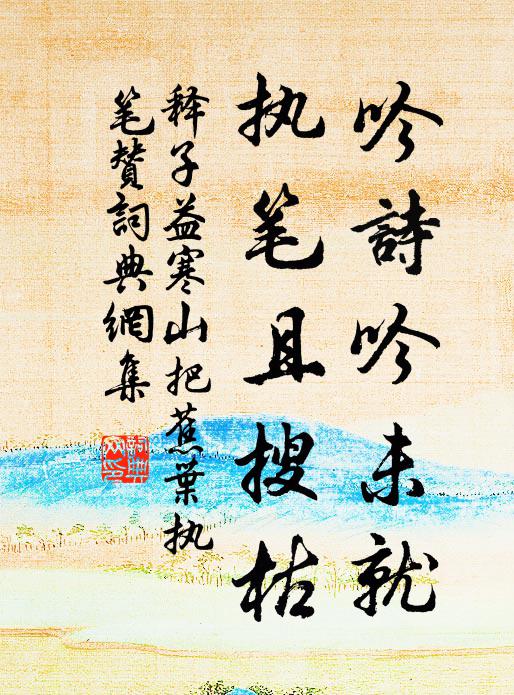 吟詩吟未就
执笔且搜枯
释子益寒山把蕉葉执
笔贊詞典網集